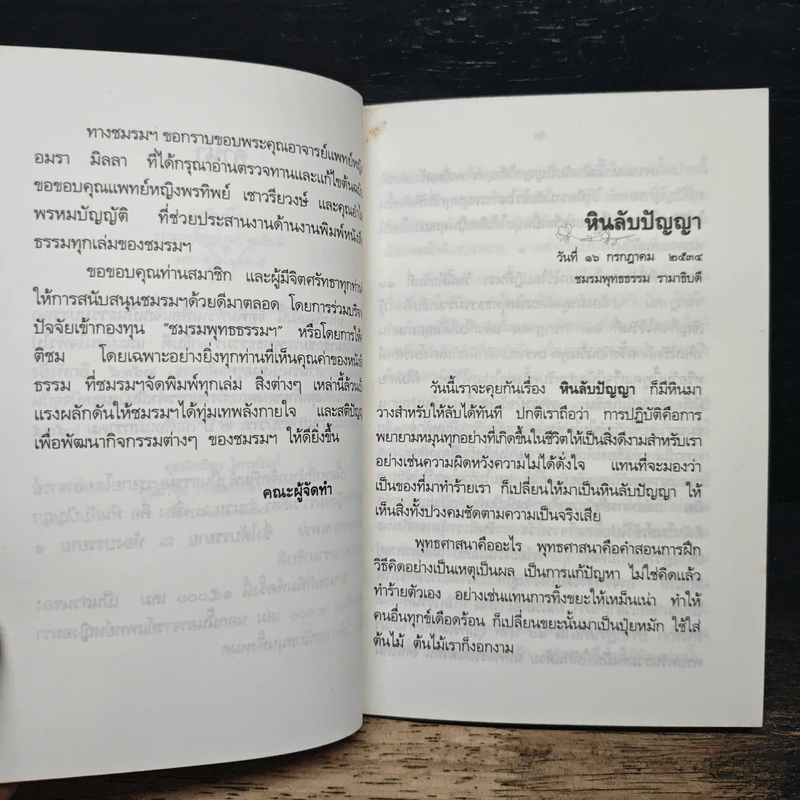 ทางชมรมฯ ขอกราบขอบพระคุณอาจารย์แพทย์หญิง
อมรา มิลลา ที่ได้กรุณาอ่านตรวจทานและแก้ไขต้น
ขอขอบคุณแพทย์หญิงพรทิพย์ เชาวรียวงษ์ และคุณ
พรหมบัญญัติ ที่ช่วยประสานงานด้านงานพิมพ์หนังสื
ธรรมทุกเล่มของชมรมฯ
ขอขอบคุณท่านสมาชิก และผู้มีจิตศรัทธาทุกท่าน
ให้การสนับสนุนชมรมฯด้วยดีมาตลอด โดยการร่วมบริจา
ปัจจัยเข้ากองทุน "ชมรมพุทธธรรมฯ" หรือโดยการให้
ติชม โดยเฉพาะอย่างยิ่งทุกท่านที่เห็นคุณค่าของหนังสื
ธรรม ที่ชมรมฯจัดพิมพ์ทุกเล่ม สิ่งต่างๆ เหล่านี้ล้วน
แรงผลักดันให้ชมรมฯได้ทุ่มเทพลังกายใจ และสติปัญ
เพื่อพัฒนากิจกรรมต่างๆ ของชมรมฯ ให้ดียิ่งขึ้น
คณะผู้จัดทำ
หินลับปัญญา
วันที่ ๑๖ กรกฎาคม ๒๕๓๔
ชมรมพุทธธรรม รามาธิบดี
วันนี้เราจะคุยกันเรื่อง หินลับปัญญา ก็มีหินมา
วางสำหรับให้ลับได้ทันที ปกติเราถือว่า การปฏิบัติคือการ
พยายามหมุนทุกอย่างที่เกิดขึ้นในชีวิตให้เป็นสิ่งดีงามสำหรับเรา
อย่างเช่นความผิดหวังความไม่ได้ดั่งใจ แทนที่จะมองว่า
เป็นของที่มาทำร้ายเรา ก็เปลี่ยนให้มาเป็นหินลับปัญญา ให้
เห็นสิ่งทั้งปวงคมชัดตามความเป็นจริงเสีย
พุทธศาสนาคืออะไร พุทธศาสนาคือคำสอนการฝึก
วิธีคิดอย่างเป็นเหตุเป็นผล เป็นการแก้ปัญหา ไม่ใช่คิดแล้ว
ทำร้ายตัวเอง อย่างเช่นแทนการทิ้งขยะให้เหม็นเน่า ทำให้
คนอื่นทุกข์เดือดร้อน ก็เปลี่ยนขยะนั้นมาเป็นปุ๋ยหมัก ใช้ใส่
ต้นไม้ ต้นไม้เราก็งอกงาม